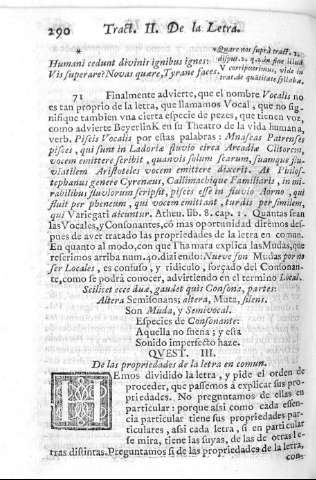 290 Tract. II. De la Letra.
Humani cedunt divinis ignibus ignes:
Vis superare? Novas quære, Tyrane faces.
*Quare nos suprà tract. 2.
disput. 2. q. 2. in fine illud
V corripuerimus, vide in
trat. de quãtitate syllabæ.
71 Finalmente advierte, que el nombre Vocalis no
es tan proprio de la letra, que llamamos Vocal, que no sig-
nifique tambien vna cierta especie de pezes, que tienen voz,
como advierte BeyerlinK en su Theatro de la vida humana,
verb. Piscis Vocalis por estas palabras: Mnaseas Patrenses
pisces, qui sunt in Ladoriæ fluvio circa Arcadiæ Clitorem,
vocem emittere scribit, quamvis solum scarum, suamque flu-
viatilem Aristoteles vocem emittere dixerit. At Philos-
tephanus genere Cyreneus, Callimachique Familiaris, in mi-
rabilibus fluviorum scripsit, pisces esse in fluvio Aorno, qui
fluit per pheneum, qui vocem emittant, turdis per similem,
qui Variegati dicuntur. Atheu. lib. 8. cap. 1. Quantas sean
las Vocales, y Consonantes, cõ mas oportunidad dirèmos des-
pues de aver tratado las propriedades de la letra en comun.
En quanto al modo, con que Thamara explica las Mudas, que
referimos arriba num. 40. diziendo: Nueve son Mudas por no
ser Locales, es confuso, y ridiculo, forçado del Consonan-
te, como se podrà conocer, advirtiendo en el termino Local.
Scilicet ecce duæ, gaudet quis Consona, partes:
Altera Semisonans; altera, Muta, silens.
Son Muda, y Semivocal.
Especies de Consonante:
Aquella no suena; y esta
Sonido imperfecto haze.
QVEST. III.
De las propriedades de la letra en comun.
HEmos dividido la letra, y pide el orden de
proceder, que passemos a explicar sus pro-
priedades. No preguntamos de ellas en
particular: porque assi como cada essen-
cia particular tiene sus propriedades par-
ticulares, assi cada letra, si en particular
se mira, tiene las suyas, de las de otras le-
tras distintas. Preguntamos si de las propriedades de la letra,
con-